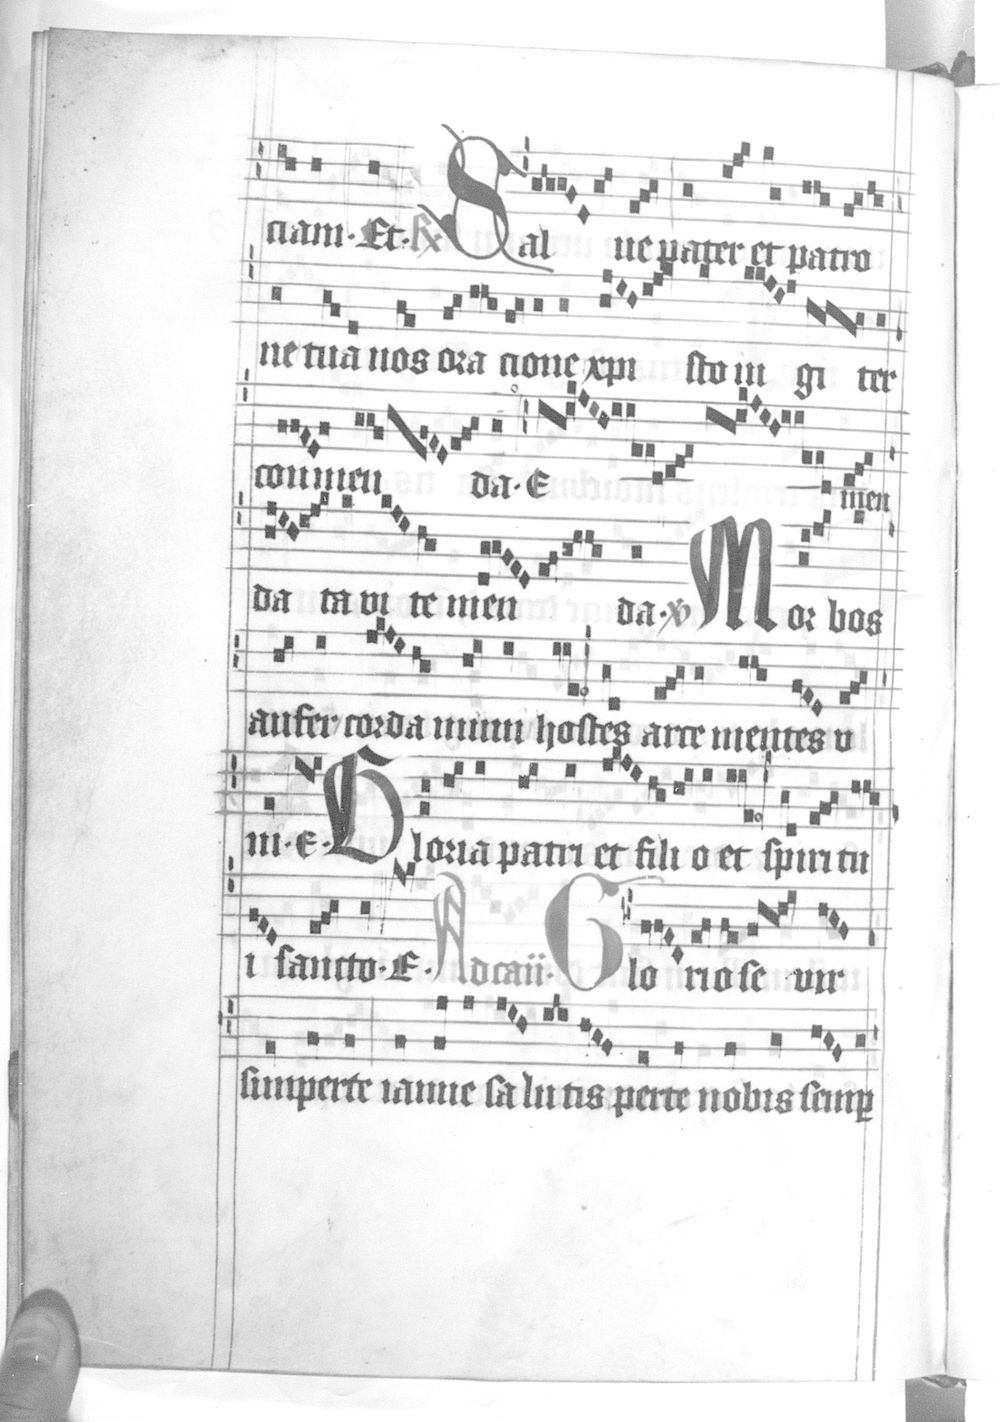 ciam · Et · R Sal ue pater et patro
ne tua nos ora cione xpi sto iu gi ter
conmen da · E men
da ta vi te men da · V Mor bos
aufer corda muni hostes arte mentes v
ni · E · Gloria patri et fili o et spiritu
i sancto · E · Ad caṅ · Glo rio se vir
simperte ianue sa lu tis perte nobis semp